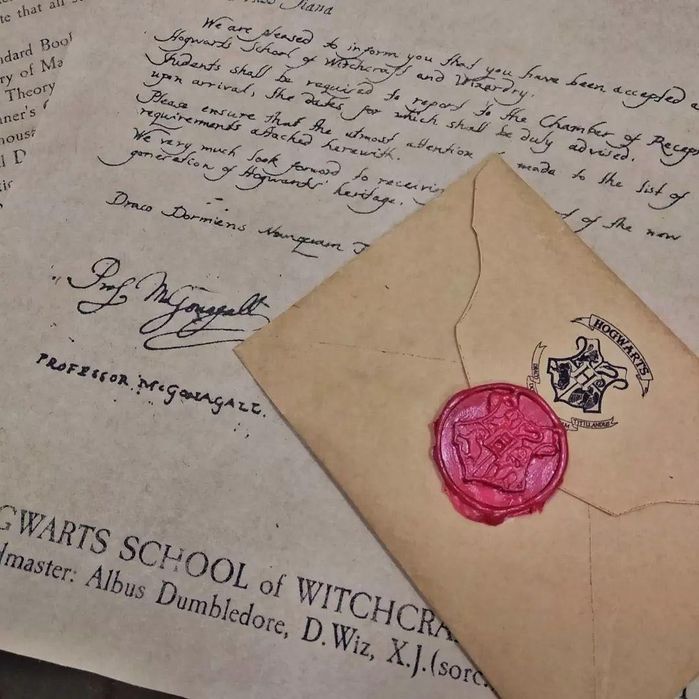 te that all s
ndard Book
ry of Ma
Theory
nner's
housa
l D
Jiana
We are pleased to inform you that you have been accepted a
Hogwarts School of Witchcraft and Wizardry.
Students shall be required to report to the Chamber of Recept
upon arrival, the dates for which shall be duly advised.
Please ensure that the utmost attention made to the list of
requirements attached herewith.
We very much look forward to receivin d of the new
generation of Hogwarts' heritage.
Draco Dormiens Nunquam T
Prof McGonagall
PROFESSOR MCGONAGALL.
HOGWARTS
DRACO
TITILLANDUS
GWARTS SCHOOL of WITCHCRA
dmaster: Albus Dumbledore, D.Wiz, X.J.(sorc.